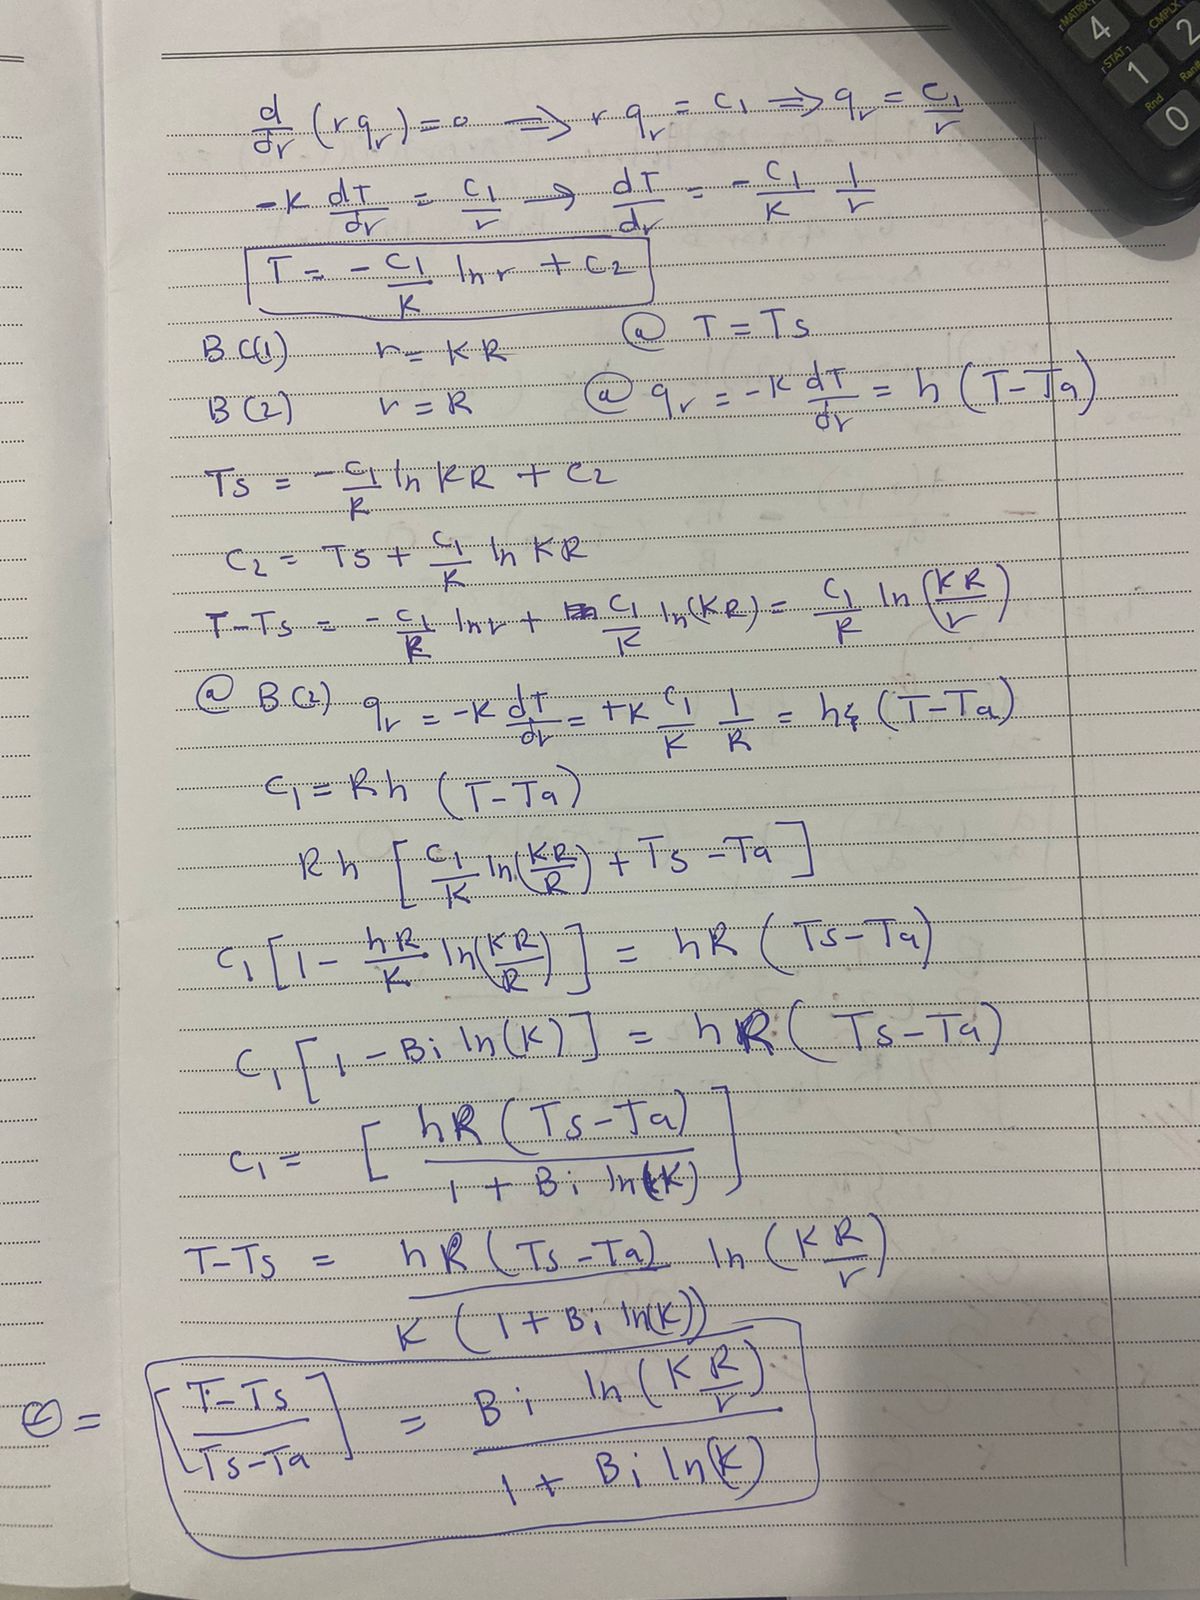 d/dr (r qr) = 0 ⟹ r qr = C1 ⟹ qr = C1/r
-K dT/dr = C1/r → dT/dr = - C1/K 1/r
T = - C1/K ln r + C2
BC(1) r = KR @ T = Ts
B(2) r = R @ qr = -K dT/dr = h (T-Ta)
Ts = - C1/K ln KR + C2
C2 = Ts + C1/K ln KR
T-Ts = - C1/K ln r + C1/K ln(KR) = C1/K ln (KR/r)
@ B(2) qr = -K dT/dr = +K C1/K 1/R = h (T-Ta)
C1 = Rh (T-Ta)
Rh [ C1/K ln(KR/R) + Ts - Ta ]
C1 [ 1 - hR/K ln(KR/R) ] = hR ( Ts-Ta)
C1 [ 1 - Bi ln(K) ] = hR ( Ts-Ta)
C1 = [ hR (Ts-Ta) / 1 + Bi ln(K) ]
T-Ts = hR (Ts-Ta) / K (1 + Bi ln(K)) ln (K R/r)
Θ = [ T-Ts / Ts-Ta ] = Bi ln (K R/r) / 1 + Bi ln(K)
MATRIX
CMPLX
4
STAT
1
2
Rnd
Ran#
0